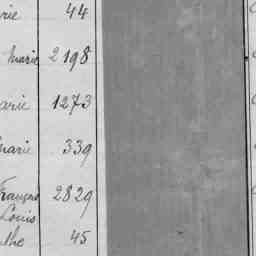 rie 44
Marie 2198
arie 1273
marie 339
François 2829
Louis
the 45